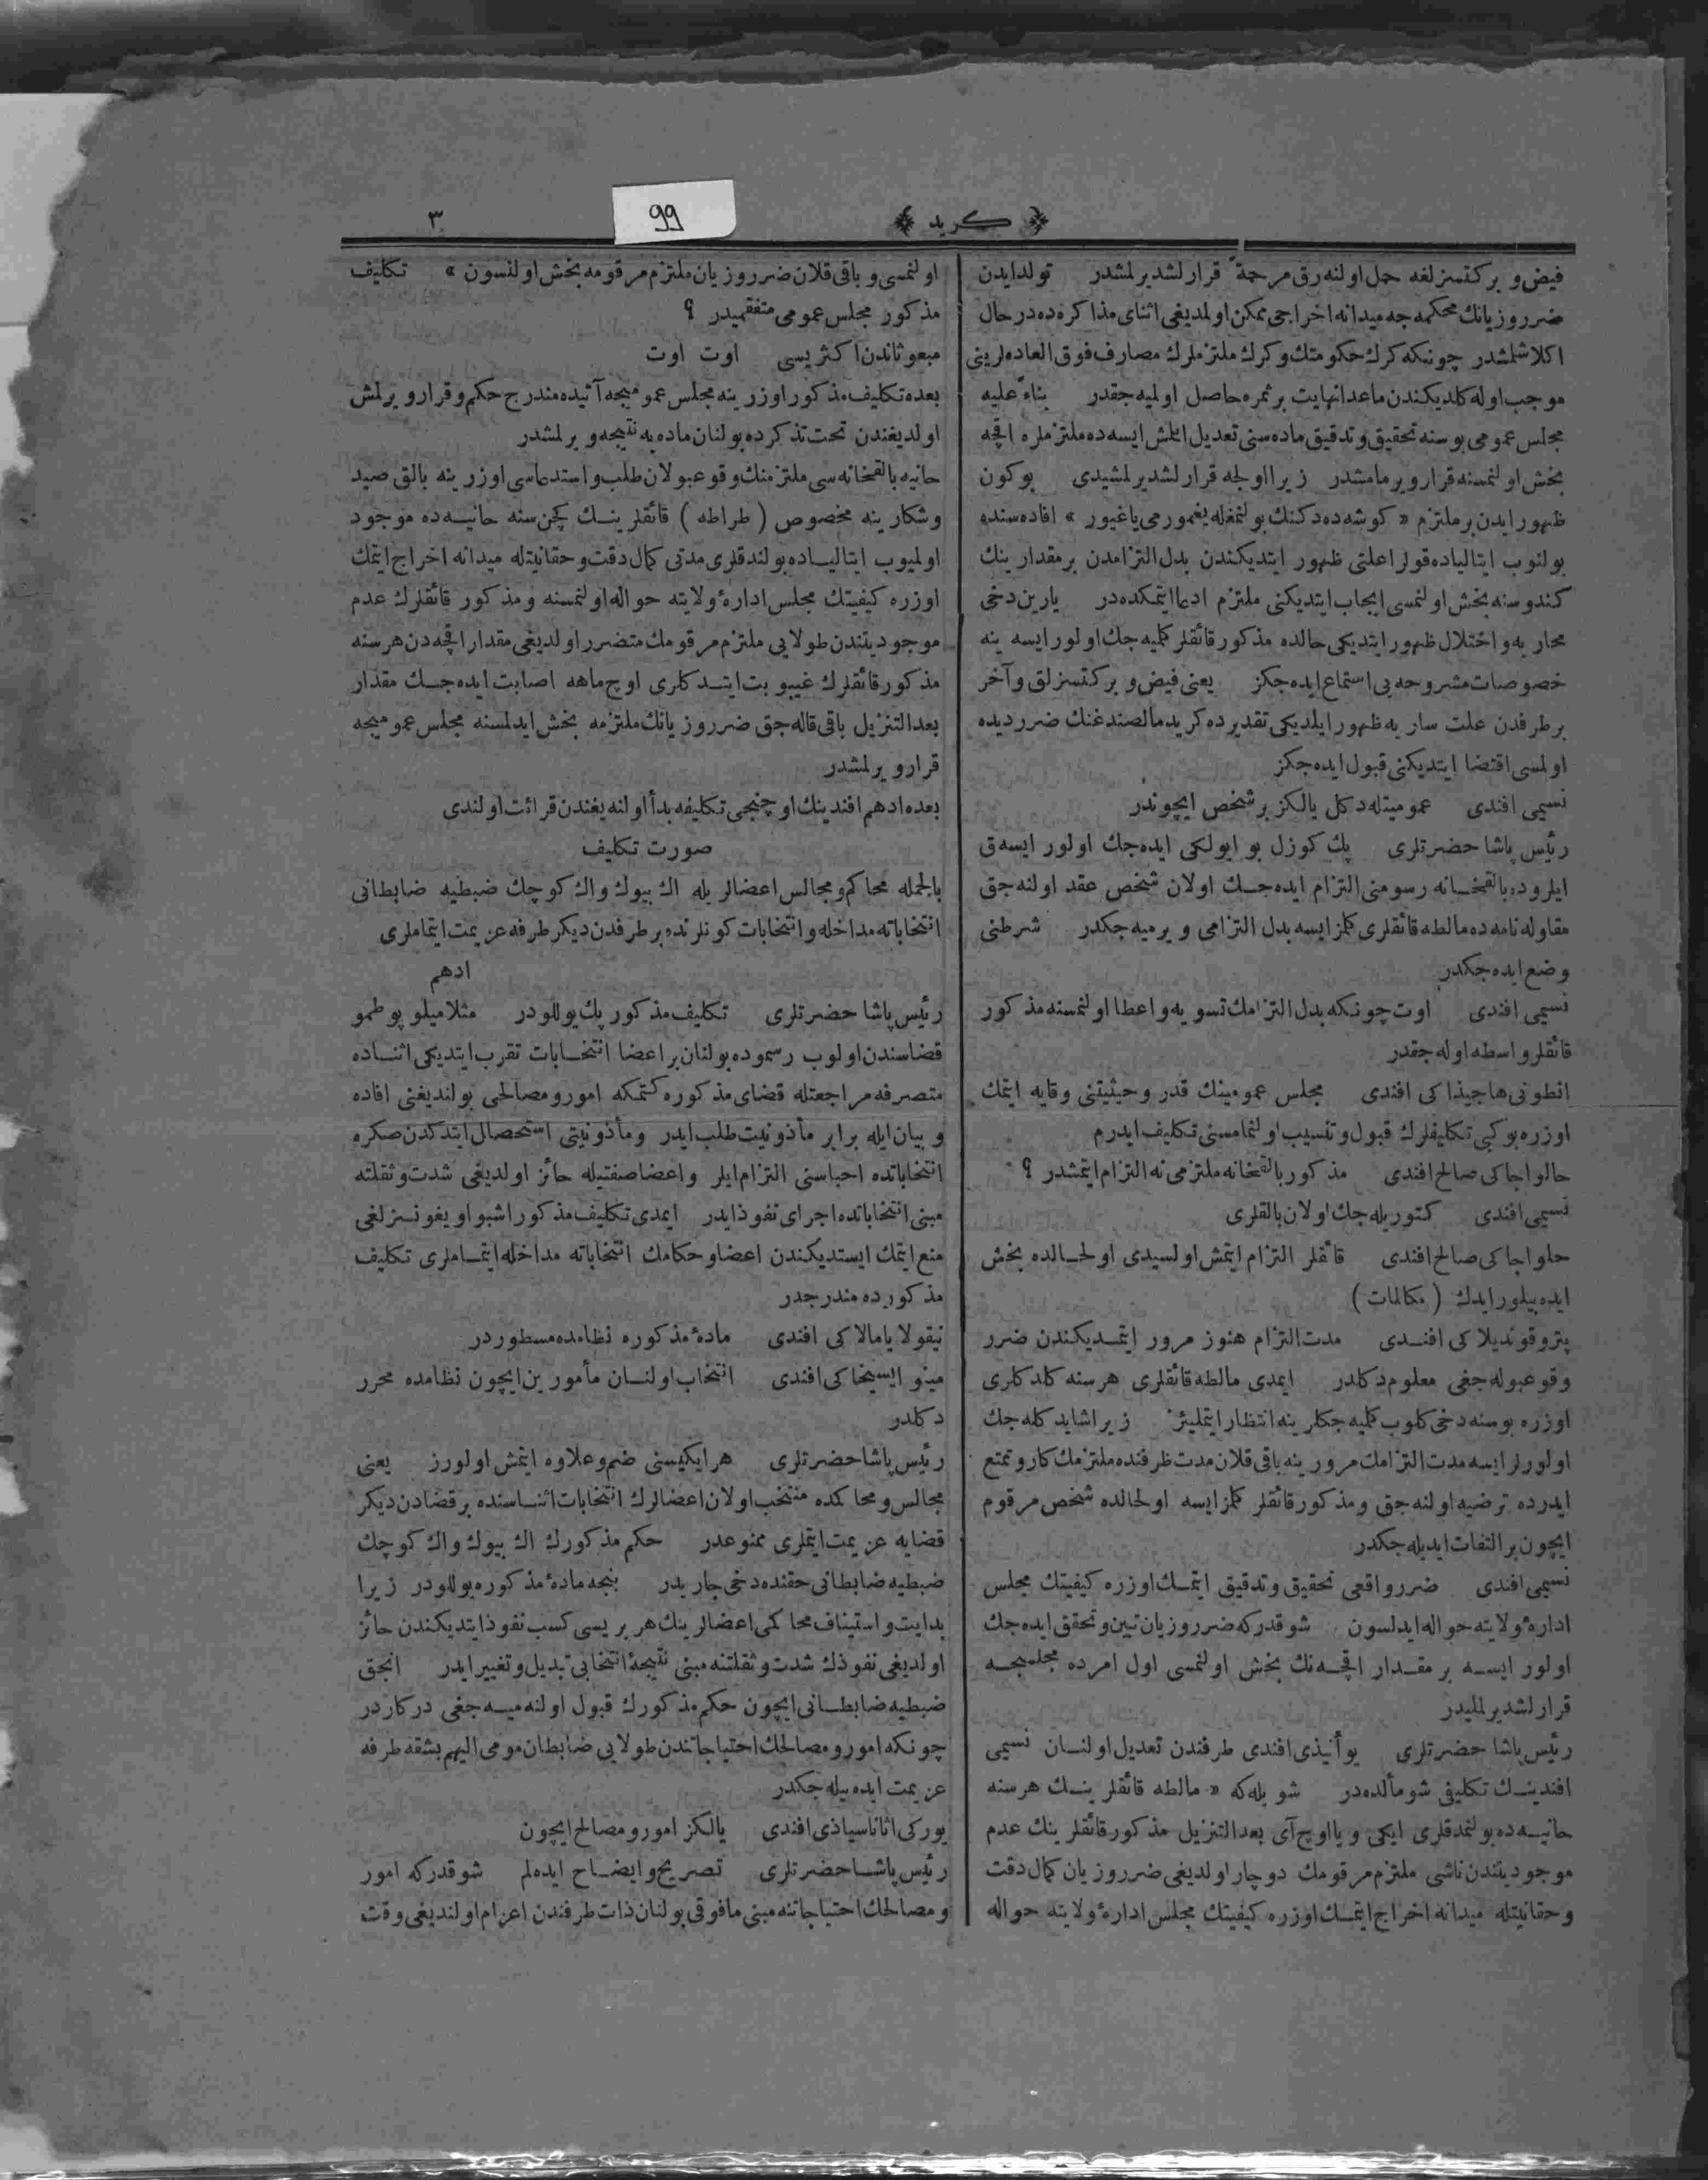 ﴿ كريد ﴾
٣
99
فيض و بركتسزلغه حمل اولنه رق مرحمةً قرارلشديرلمشدر تولد ايدن
ضرر و زيانك محكمه جه ميدانه اخراجى ممكن اولمديغى اثناى مذاكره ده درحال
اكلاشلمشدر چونكه كرك حكومتك و كرك ملتزملرك مصارف فوق العاده لرينى
موجب اوله كلديكندن ماعدا نهايت بر ثمره حاصل اولميه جقدر بناءً عليه
مجلس عمومى بو سنه تحقيق و تدقيق ماده سنى تعديل ايتمش ايسه ده ملتزملره اقچه
بخش اولنمسنه قرار ويرمامشدر زيرا اولجه قرارلشديرلمشيدى بوكون
ظهور ايدن بر ملتزم « كوشه ده دكنك بولنمغله يغمورمى ياغيور » افاده سنده
بولنوب ايتالياده قولرا علتى ظهور ايتديكندن بدل التزامدن بر مقدارينك
كندوسنه بخش اولنمسى ايجاب ايتديكنى ملتزم ادعا ايتمكده در يارين دخى
محاربه و اختلال ظهور ايتديكى حالده مذكور قائقلر كلميه جك اولور ايسه ينه
خصوصات مشروحه يى استماع ايده جكز يعنى فيض و بركتسزلق و آخر
بر طرفدن علت ساريه ظهور ايلديكى تقديرده كريد مال صندغنك ضررديده
اولمسى اقتضا ايتديكنى قبول ايده جكز
نسيمى افندى عموميتله دكل يالكز بر شخص ايچوندر
رئيس پاشا حضرتلرى پك كوزل بو ايولكى ايده جك اولور ايسه ق
ايلروده بالقخانه رسومنى التزام ايده جك اولان شخص عقد اولنه جق
مقاوله نامه ده مالطه قائقلرى كلمز ايسه بدل التزامى ويرميه جكدر شرطنى
وضع ايده جكدر
نسيمى افندى اوت چونكه بدل التزامك تسويه و اعطا اولنمسنه مذكور
قائقلر واسطه اوله جقدر
انطونى هاجيذاكى افندى مجلس عمومينك قدر و حيثيتنى وقايه ايتمك
اوزره بو كبى تكليفلرك قبول و تنسيب اولنمامسنى تكليف ايدرم
حالواجاكى صالح افندى مذكور بالقخانه ملتزمى نه التزام ايتمشدر ؟
نسيمى افندى كتوريله جك اولان بالقلرى
حلواجاكى صالح افندى قائقلر التزام ايتمش اولسيدى اولحالده بخش
ايده بيلور ايدك ( مكالمات )
پتروقونديلاكى افندى مدت التزام هنوز مرور ايتمديكندن ضرر
وقوعبوله جغى معلوم دكلدر ايمدى مالطه قائقلرى هر سنه كلدكلرى
اوزره بو سنه دخى كلوب كلميه جكلرينه انتظار ايتمليز زيرا شايد كله جك
اولورلر ايسه مدت التزامك مرورينه باقى قلان مدت ظرفنده ملتزمك كار و تمتع
ايدرده ترضيه اولنه جق و مذكور قائقلر كلمز ايسه اولحالده شخص مرقوم
ايچون بر التفات ايديله جكدر
نسيمى افندى ضرر واقعى تحقيق و تدقيق ايتمك اوزره كيفيتك مجلس
ادارهٔ ولايته حواله ايدلسون شوقدركه ضرر و زيان تبين و تحقق ايده جك
اولور ايسه بر مقدار اقچه نك بخش اولنمسى اول امرده مجلسجه
قرارلشديرلمليدر
رئيس پاشا حضرتلرى يوأنيذى افندى طرفندن تعديل اولنان نسيمى
افندينك تكليفى شو مألده در شويله كه « مالطه قائقلرينك هر سنه
حانيه ده بولنمدقلرى ايكى و يا اوچ آى بعد التنزيل مذكور قائقلرينك عدم
موجوديتندن ناشى ملتزم مرقومك دوچار اولديغى ضرر و زيان كمال دقت
و حقانيتله ميدانه اخراج ايتمك اوزره كيفيتك مجلس ادارهٔ ولايته حواله
اولنمسى و باقى قلان ضرر و زيان ملتزم مرقومه بخش اولنسون » تكليف
مذكور مجلس عمومى متفقميدر ؟
مبعوثاندن اكثريسى اوت اوت
بعده تكليف مذكور اوزرينه مجلس عموميجه آتيده مندرج حكم و قرار ويرلمش
اولديغندن تحت تذكرده بولنان ماده يه نتيجه ويرلمشدر
حانيه بالقخانه سى ملتزمنك وقوعبولان طلب و استدعاسى اوزرينه بالق صيد
و شكارينه مخصوص ( طراطه ) قائقلرينك كچن سنه حانيه ده موجود
اولميوب ايتالياده بولندقلرى مدتى كمال دقت و حقانيتله ميدانه اخراج ايتمك
اوزره كيفيتك مجلس ادارهٔ ولايته حواله اولنمسنه و مذكور قائقلرك عدم
موجوديتندن طولايى ملتزم مرقومك متضرر اولديغى مقدار اقچه دن هر سنه
مذكور قائقلرك غيبوبت ايتدكلرى اوچ ماهه اصابت ايده جك مقدار
بعد التنزيل باقى قاله جق ضرر و زيانك ملتزمه بخش ايدلمسنه مجلس عموميجه
قرار ويرلمشدر
بعده ادهم افندينك اوچنجى تكليفه بدأ اولنه يغندن قرائت اولندى
صورت تكليف
بالجمله محاكم و مجالس اعضالريله اك بيوك و اك كوچك ضبطيه ضابطانى
انتخاباته مداخله و انتخابات كونلرنده بر طرفدن ديكر طرفه عزيمت ايتماملرى
ادهم
رئيس پاشا حضرتلرى تكليف مذكور پك يوللودر مثلا ميلوپوطمو
قضاسندن اولوب رسموده بولنان بر اعضا انتخابات تقرب ايتديكى اثناده
متصرفه مراجعتله قضاى مذكوره كتمكه امور و مصالحى بولنديغنى افاده
و بيان ايله برابر مأذونيت طلب ايدر و مأذونيتى استحصال ايتدكدن صكره
انتخاباتده احباسنى التزام ايلر و اعضا صفتيله حائز اولديغى شدت و ثقلته
مبنى انتخاباتده اجراى نفوذ ايدر ايمدى تكليف مذكور اشبو اويغونسزلغى
منع ايتمك ايستديكندن اعضا و حكامك انتخاباته مداخله ايتماملرى تكليف
مذكورده مندرجدر
نيقولا يامالاكى افندى مادهٔ مذكوره نظامده مسطوردر
مينو ايسيخاكى افندى انتخاب اولنان مأمورين ايچون نظامده محرر
دكلدر
رئيس پاشا حضرتلرى هر ايكيسنى ضم و علاوه ايتمش اولورز يعنى
مجالس و محاكمده منتخب اولان اعضالرك انتخابات اثناسنده بر قضادن ديكر
قضايه عزيمت ايتملرى ممنوعدر حكم مذكورك اك بيوك و اك كوچك
ضبطيه ضابطانى حقنده دخى جاريدر بنجه مادهٔ مذكوره يوللودر زيرا
بدايت و استيناف محاكمى اعضالرينك هر بريسى كسب نفوذ ايتديكندن حائز
اولديغى نفوذك شدت و ثقلتنه مبنى نتيجهٔ انتخابى تبديل و تغيير ايدر انجق
ضبطيه ضابطانى ايچون حكم مذكورك قبول اولنه ميه جغى دركاردر
چونكه امور و مصالحك احتياجاتندن طولايى ضابطان مومى اليهم بشقه طرفه
عزيمت ايده بيله جكدر
يوركى اثاناسياذى افندى يالكز امور و مصالح ايچون
رئيس پاشا حضرتلرى تصريح و ايضاح ايده لم شوقدركه امور
و مصالحك احتياجاتنه مبنى مافوقى بولنان ذات طرفندن اعزام اولنديغى وقت